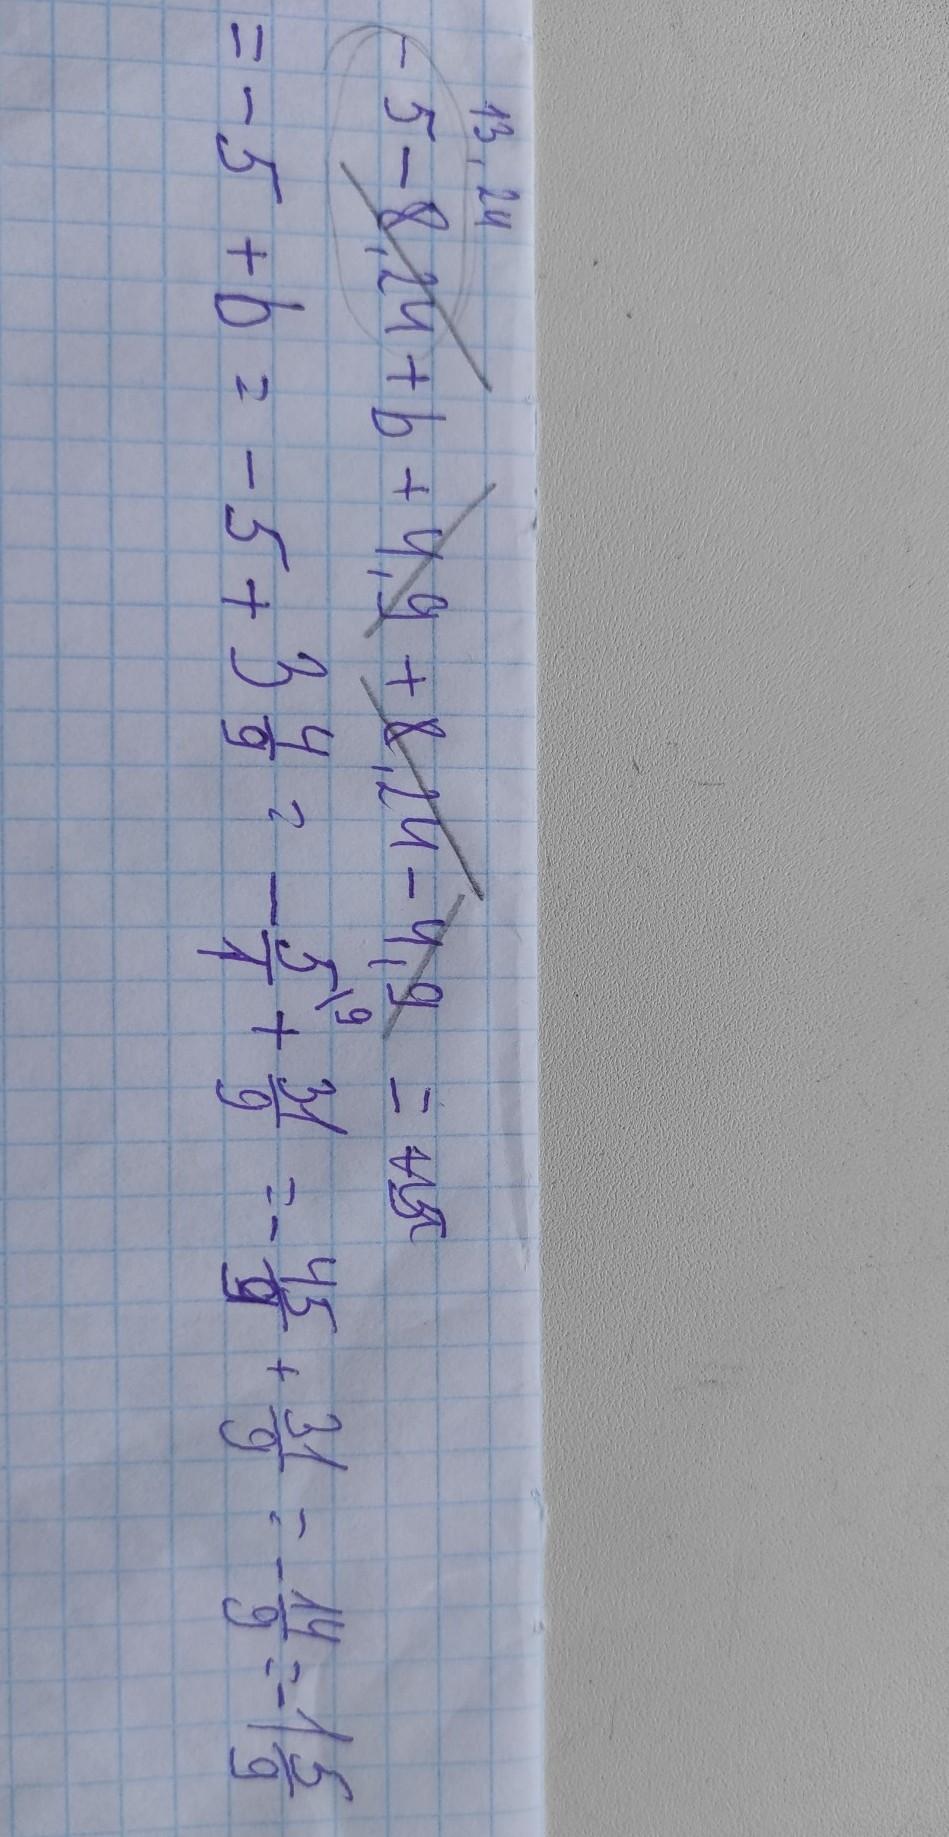 13,24
- 5 - 8,24 + b + 4,9 + 8,24 - 4,9 =
= - 5 + b = - 5 + 3 4/9 = - 5\9/1 + 31/9 = - 45/9 + 31/9 = - 14/9 = - 1 5/9